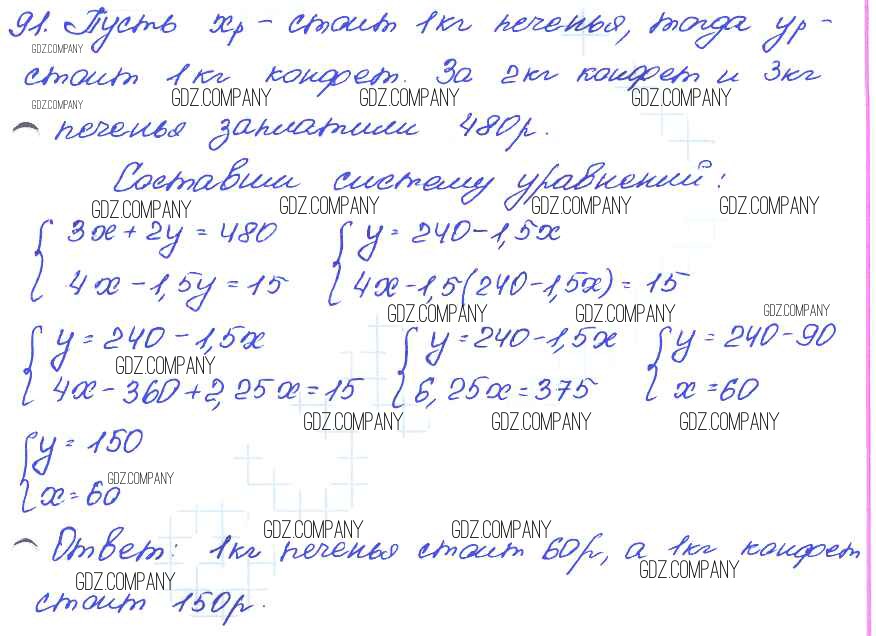 91. Пусть xр - стоит 1кг печенья, тогда yр -
GDZ.COMPANY
стоит 1кг конфет. За 2кг конфет и 3кг
GDZ.COMPANY GDZ.COMPANY GDZ.COMPANY GDZ.COMPANY
печенья заплатили 480р.
Составим систему уравнений:
GDZ.COMPANY GDZ.COMPANY GDZ.COMPANY GDZ.COMPANY
3x + 2y = 480 y = 240 - 1,5x
4x - 1,5y = 15 4x - 1,5(240 - 1,5x) = 15
GDZ.COMPANY GDZ.COMPANY GDZ.COMPANY
y = 240 - 1,5x y = 240 - 1,5x y = 240 - 90
GDZ.COMPANY
4x - 360 + 2,25x = 15 6,25x = 375 x = 60
GDZ.COMPANY GDZ.COMPANY GDZ.COMPANY
y = 150
GDZ.COMPANY
x = 60
GDZ.COMPANY GDZ.COMPANY
Ответ: 1кг печенья стоит 60р, а 1кг конфет
GDZ.COMPANY GDZ.COMPANY
стоит 150р.